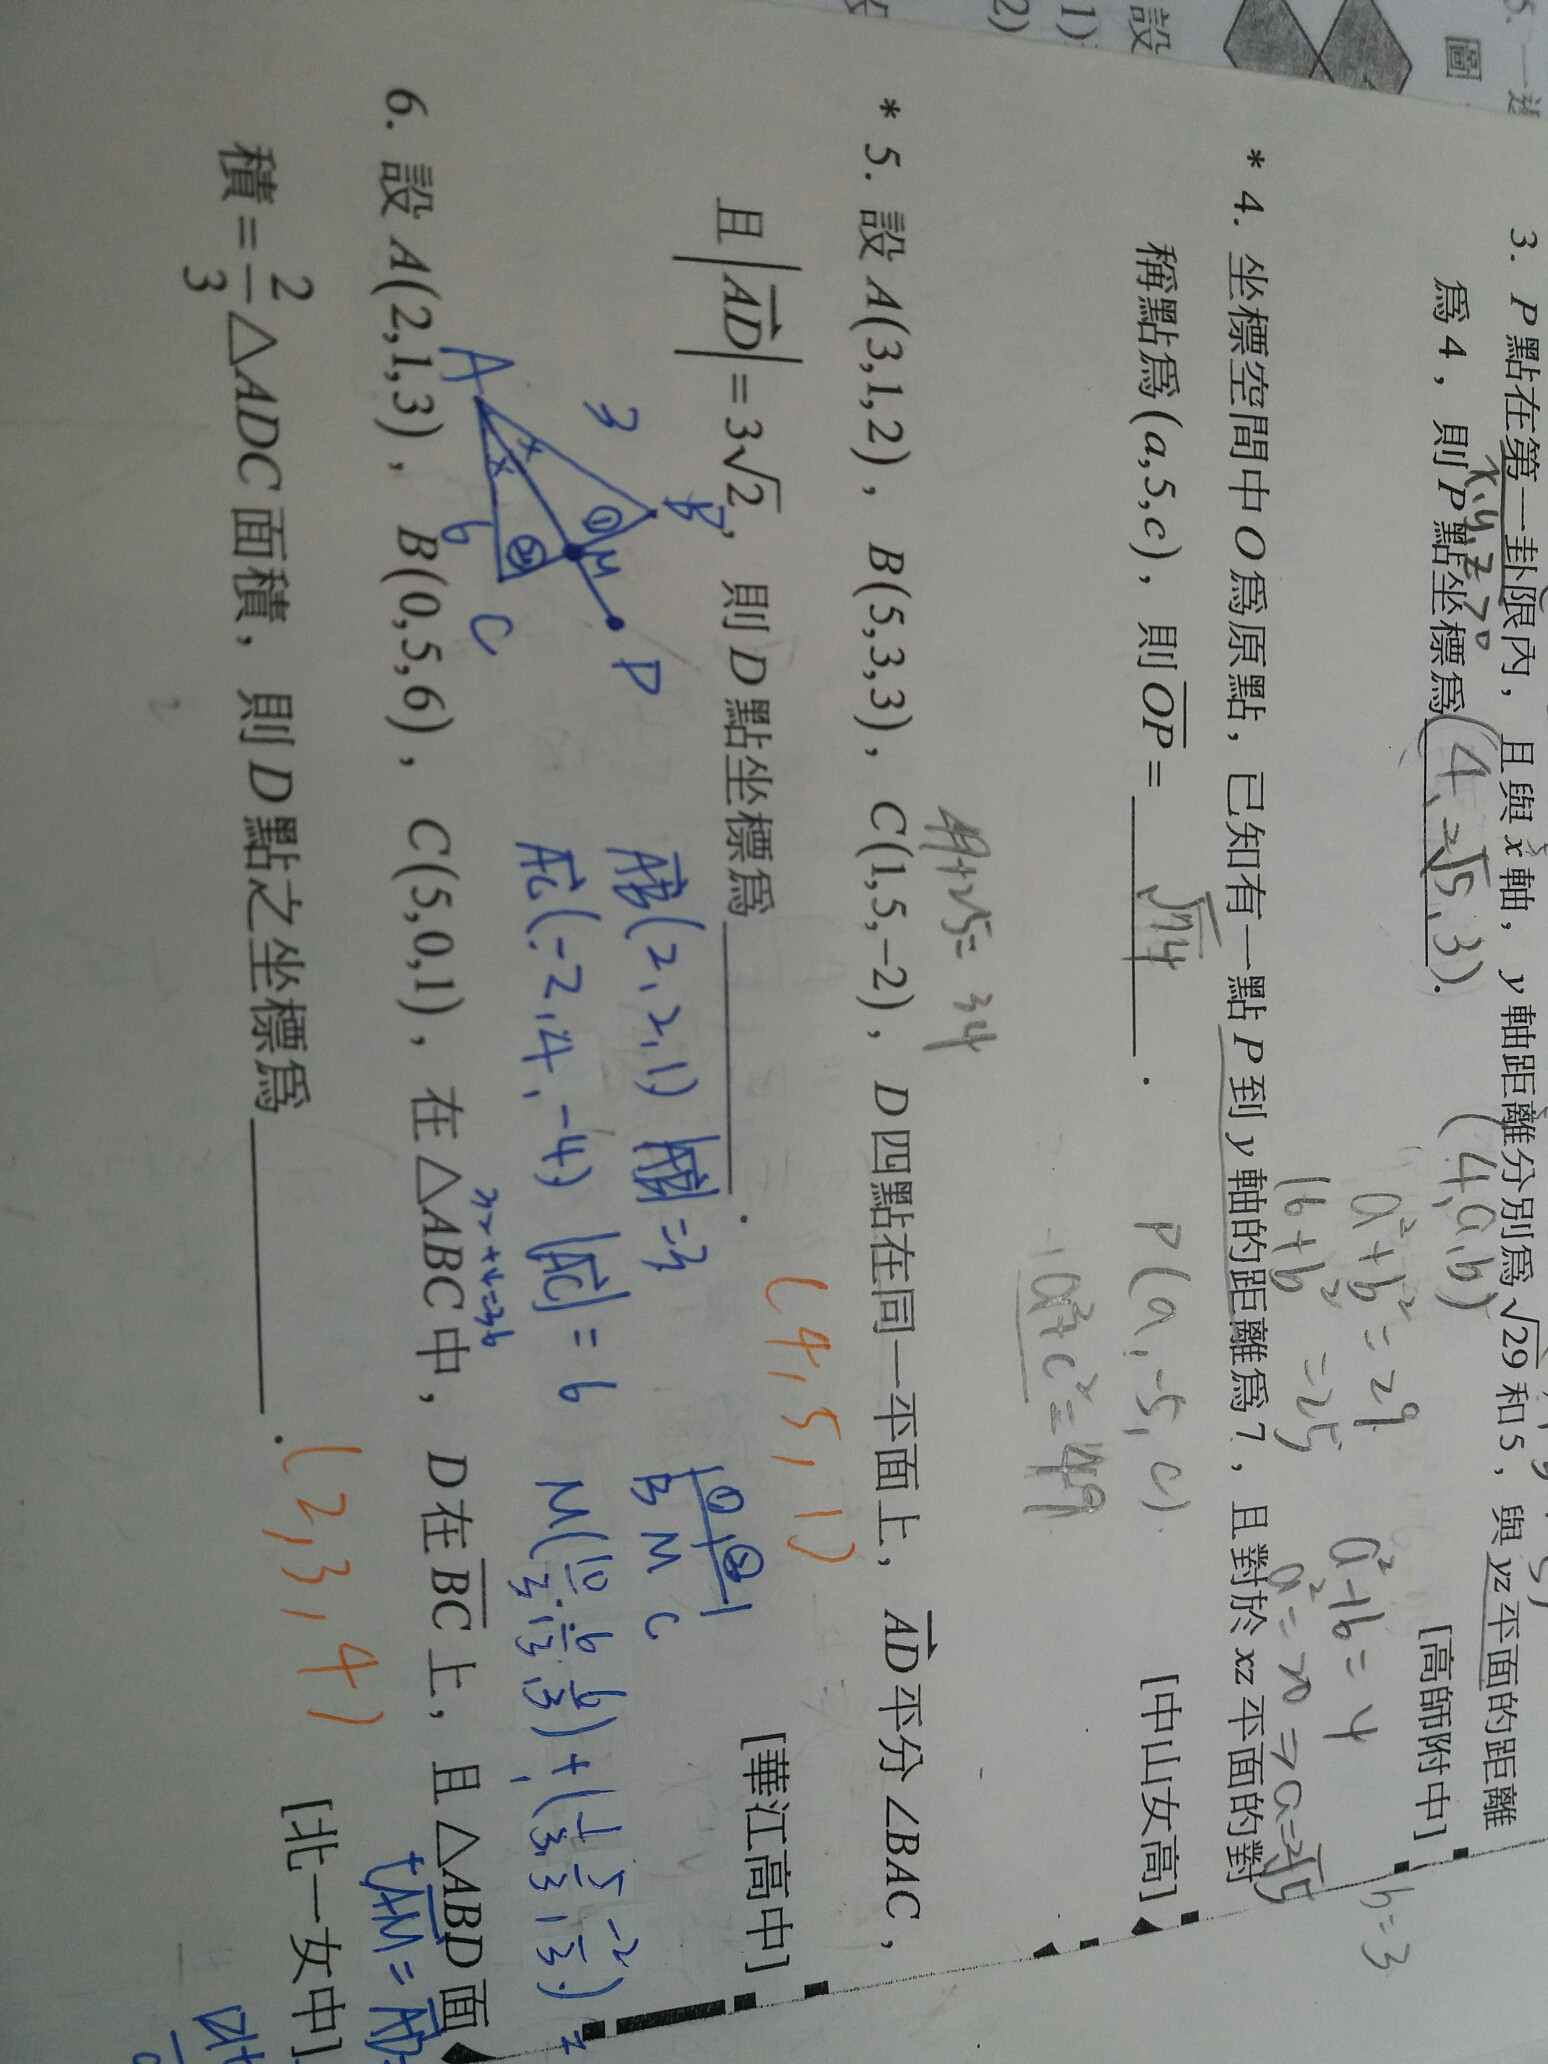 5. 一
圖
設
1)
2)
3. P點在第一卦限內，且與x軸，y軸距離分別為√29和5，與yz平面的距離
為4，則P點坐標為(4, 2√5, 3).
[高師附中]
x,y,z>0
(4,a,b)
a²+b²=29
16+b²=25
a²+b=4
a²=20⇒a=2√5
b=3
* 4. 坐標空間中O為原點，已知有一點P到y軸的距離為7，且對於xz平面的對
稱點為(a,5,c)，則OP=√74.
[中山女高]
P(a,-5,c)
a²+c²=49
49+25=34
* 5. 設A(3,1,2)，B(5,3,3)，C(1,5,−2)，D四點在同一平面上，AD平分∠BAC，
且|AD|=3√2，則D點坐標為.
[華江高中]
(4,5,1)
A
3
B
6
C
M
D
①
②
AB(2,2,1) |AB|=3
AC(-2,4,-4) |AC|=6
① ②
B M C
M(10/3, 6/3, 6/3)+(1/3, 5/3, -2/3)=
6. 設A(2,1,3)，B(0,5,6)，C(5,0,1)，在△ABC中，D在BC上，且△ABD面
積=2/3△ADC面積，則D點之坐標為.
[北一女中]
(2,3,4)
tAM=AD